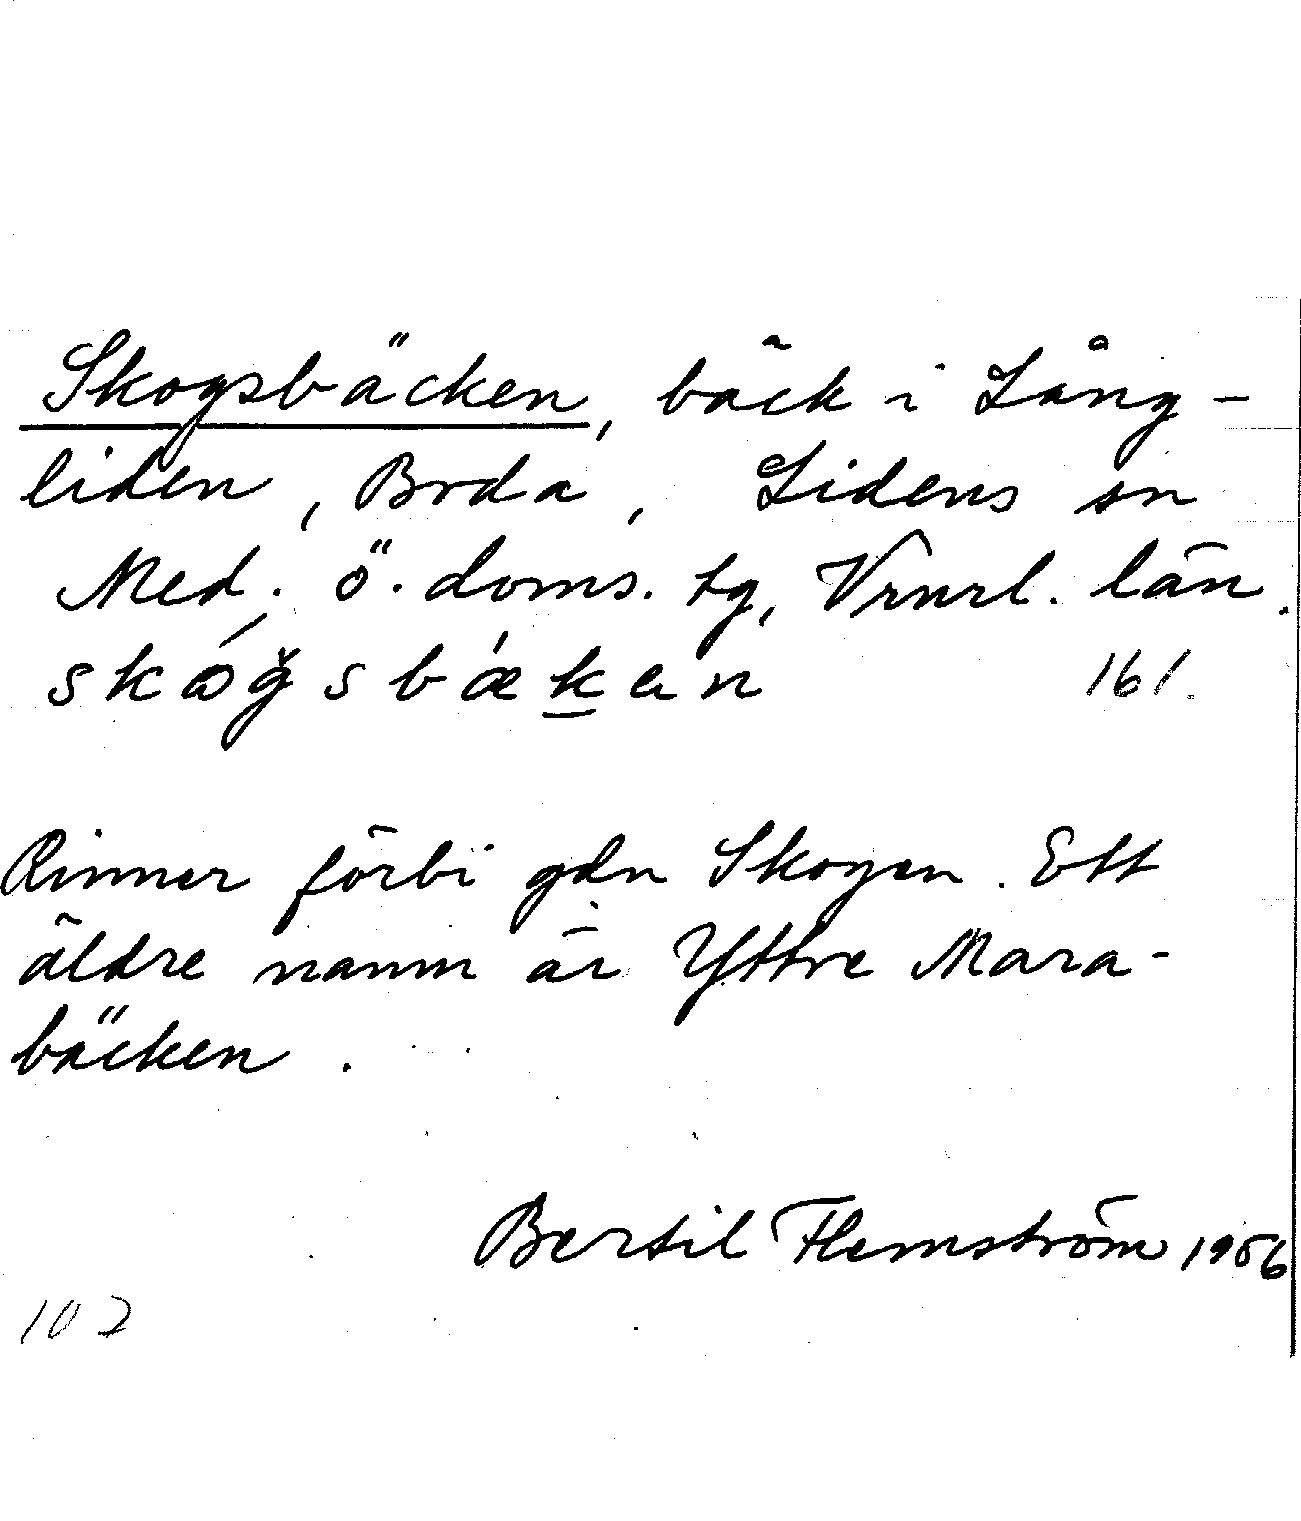 Skogsbäcken, bäck i Lång-
liden, Boda, Lidens sn
Med. ö. doms. tg, Vrnrl. län.
161.
Rinner förbi gdn Skogen. Ett
äldre namn är Yttre Mara-
bäcken.
Bertil Flemström 1956
102